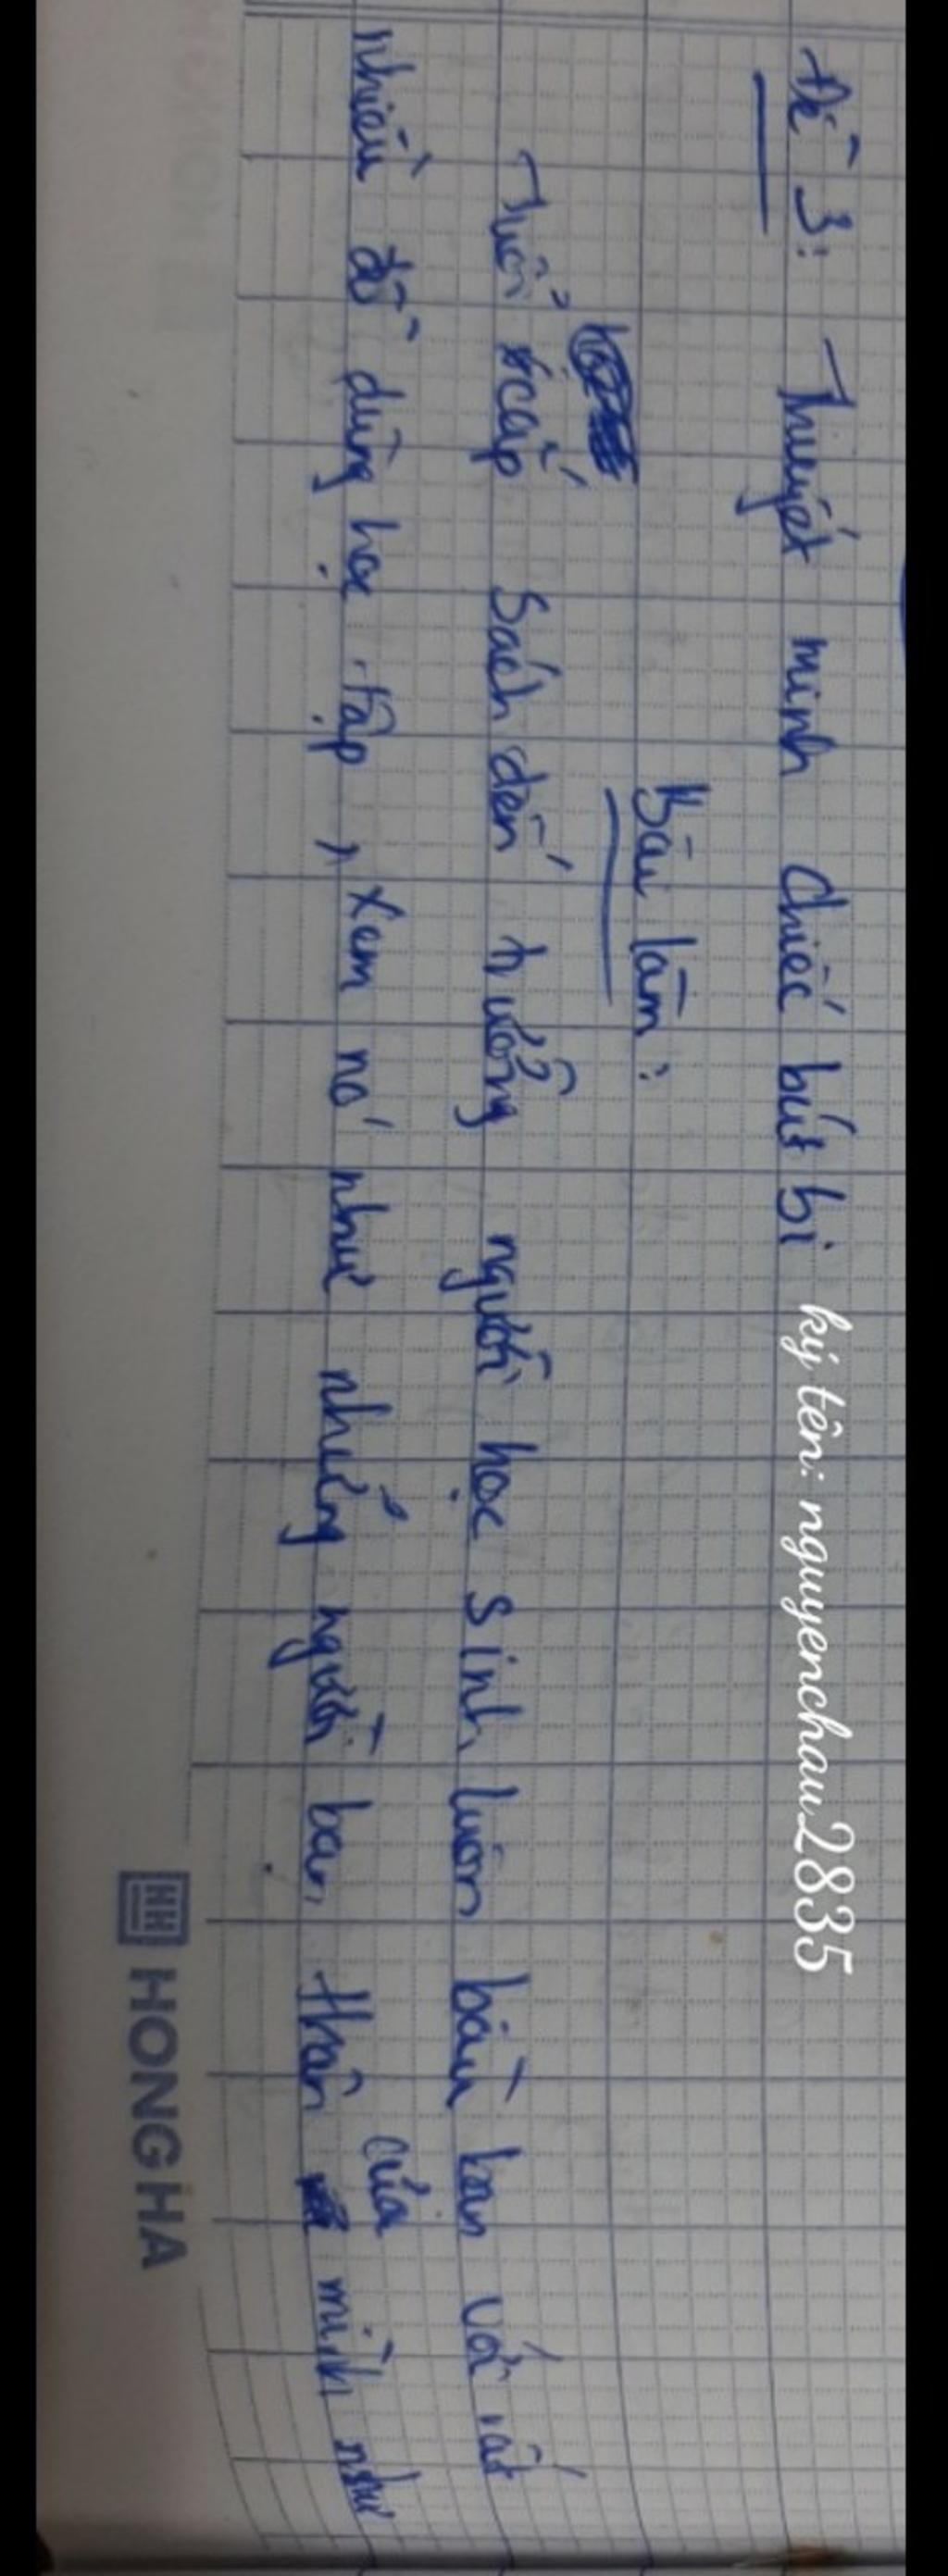 Đề 3: Thuyết minh chiếc bút bi ký tên: nguyenchau2835
Bài làm:
Tuổi cắp sách đến trường người học sinh luôn bầu bạn với rất
nhiều đồ dùng học tập, xem nó như những người bạn thân của mình như
HONG HA